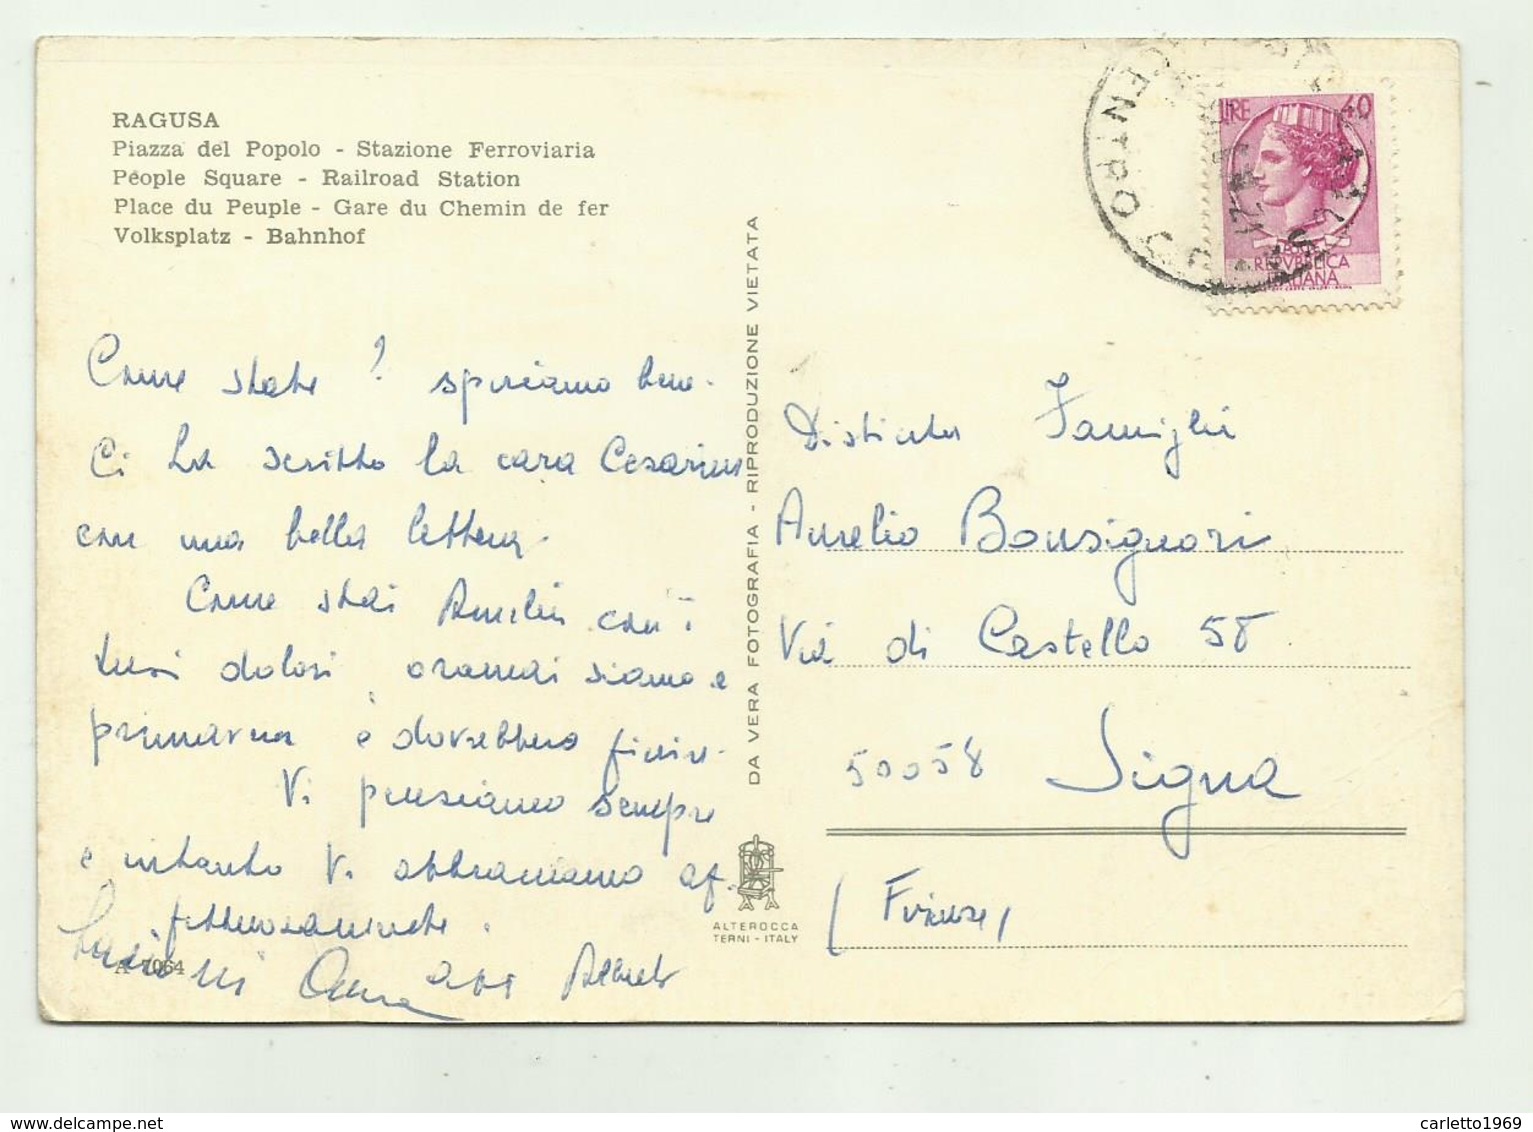 RAGUSA
Piazza del Popolo - Stazione Ferroviaria
People Square - Railroad Station
Place du Peuple - Gare du Chemin de fer
Volksplatz - Bahnhof
Come state? speriamo bene.
Ci ha scritto la cara Cesarina
con una bella lettera.
Come stai Amelia con i
tuoi dolori, oramai siamo a
primavera e dovrebbero finire.
Vi pensiamo sempre
e intanto Vi abbracciamo af-
fettuosamente.
A 7064
DA VERA FOTOGRAFIA - RIPRODUZIONE VIETATA
ALTEROCCA
TERNI - ITALY
CENTRO
LIRE 40
REPVBBLICA
ITALIANA
Distinta Famiglia
Aurelio Bonsignori
Via di Castello 58
50058 Signa
(Firenze)
delcampe.net
carletto1969